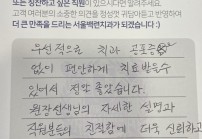 또는 칭찬하고 싶은 직원이 있으시다면 알려주세요.
고객 여러분의 소중한 의견을 정성껏 귀담아듣고 반영하여
더 큰 만족을 드리는 서울백련치과가 되겠습니다 :)
우선적으로 치과 공포증
없이 편안하게 치료받을수
있어서 정말 좋았습니다.
원장선생님의 자세한 설명과
직원분들의 친절함에 더욱 신뢰하고